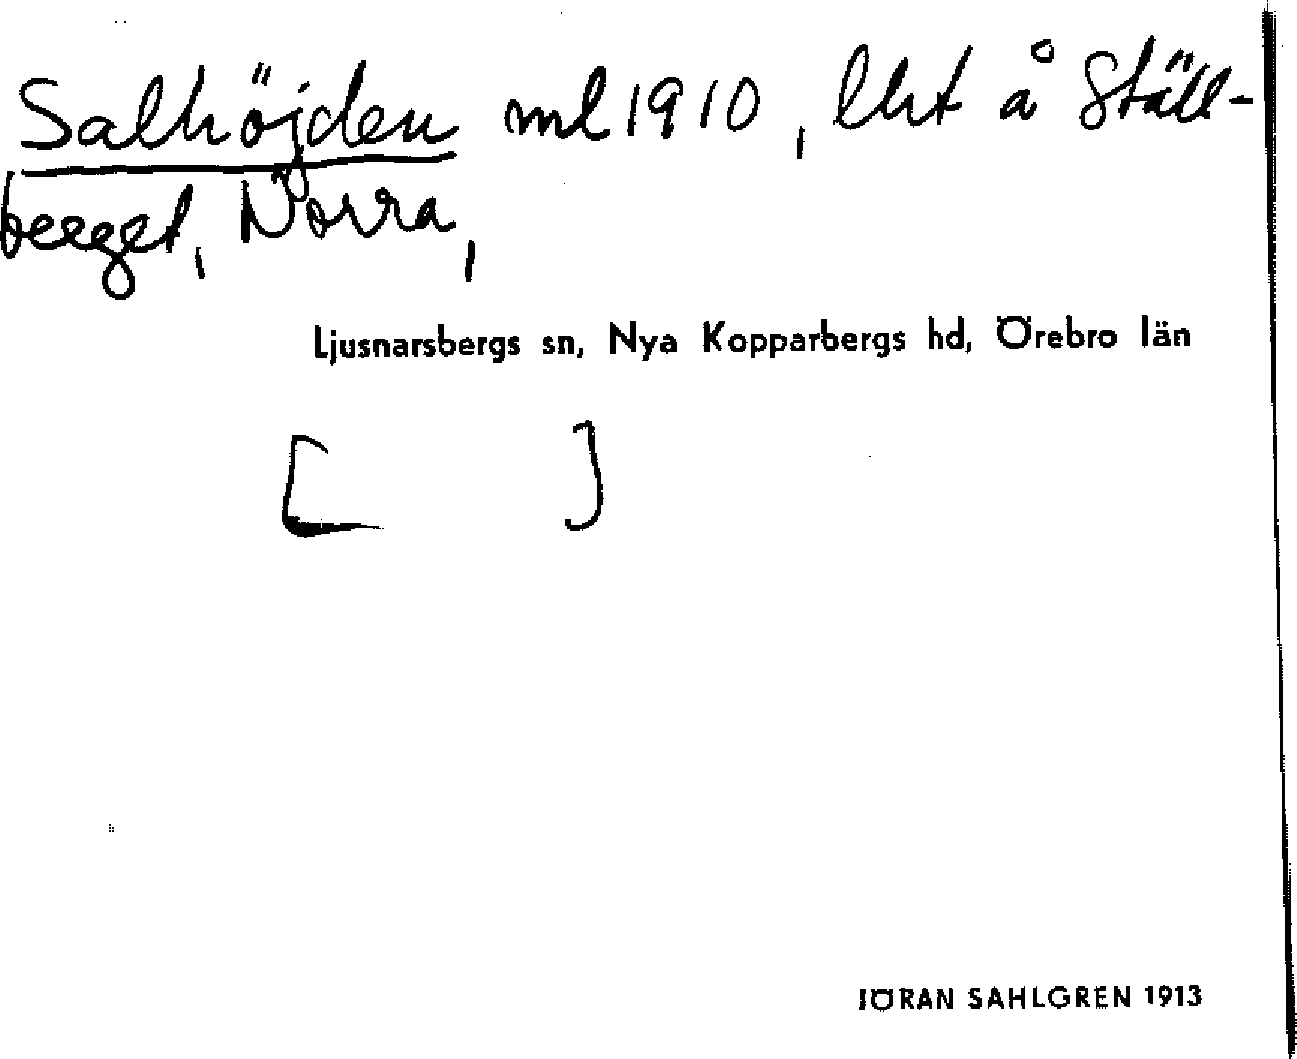 Salhöjden ml 1910, lht å Ställ-
berget, Norra,
Ljusnarsbergs sn, Nya Kopparbergs hd, Örebro län
[ ]
JÖRAN SAHLGREN 1913